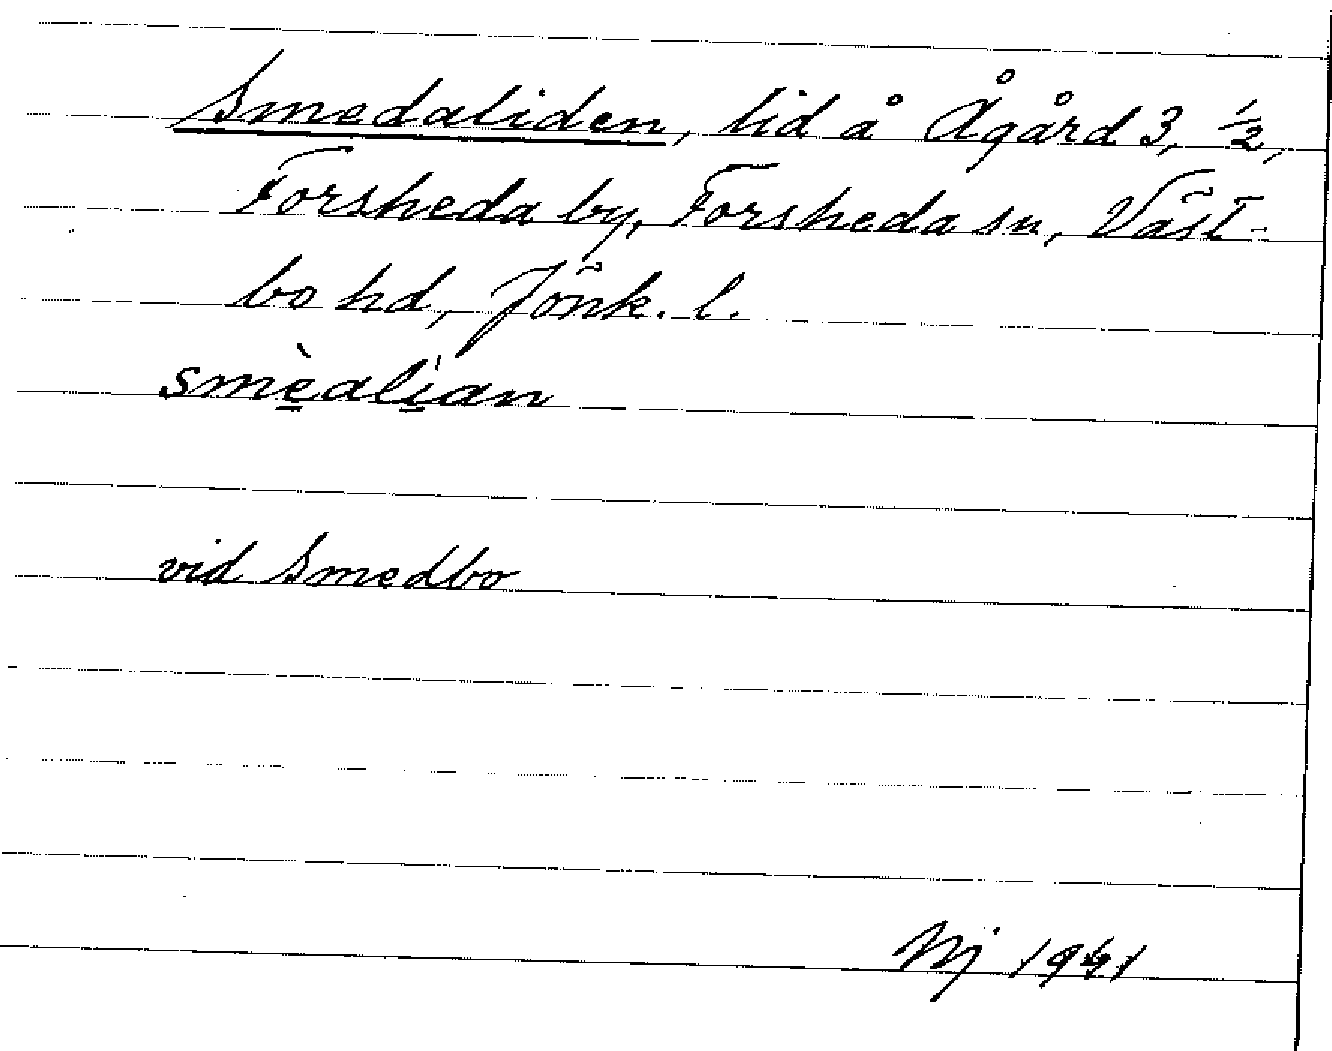 Smedaliden, lid å Ågård 3, ½,
Forsheda by, Forsheda sn, Väst-
bo hd, Jönk. l.
smèalían
vid Smedbo
1941